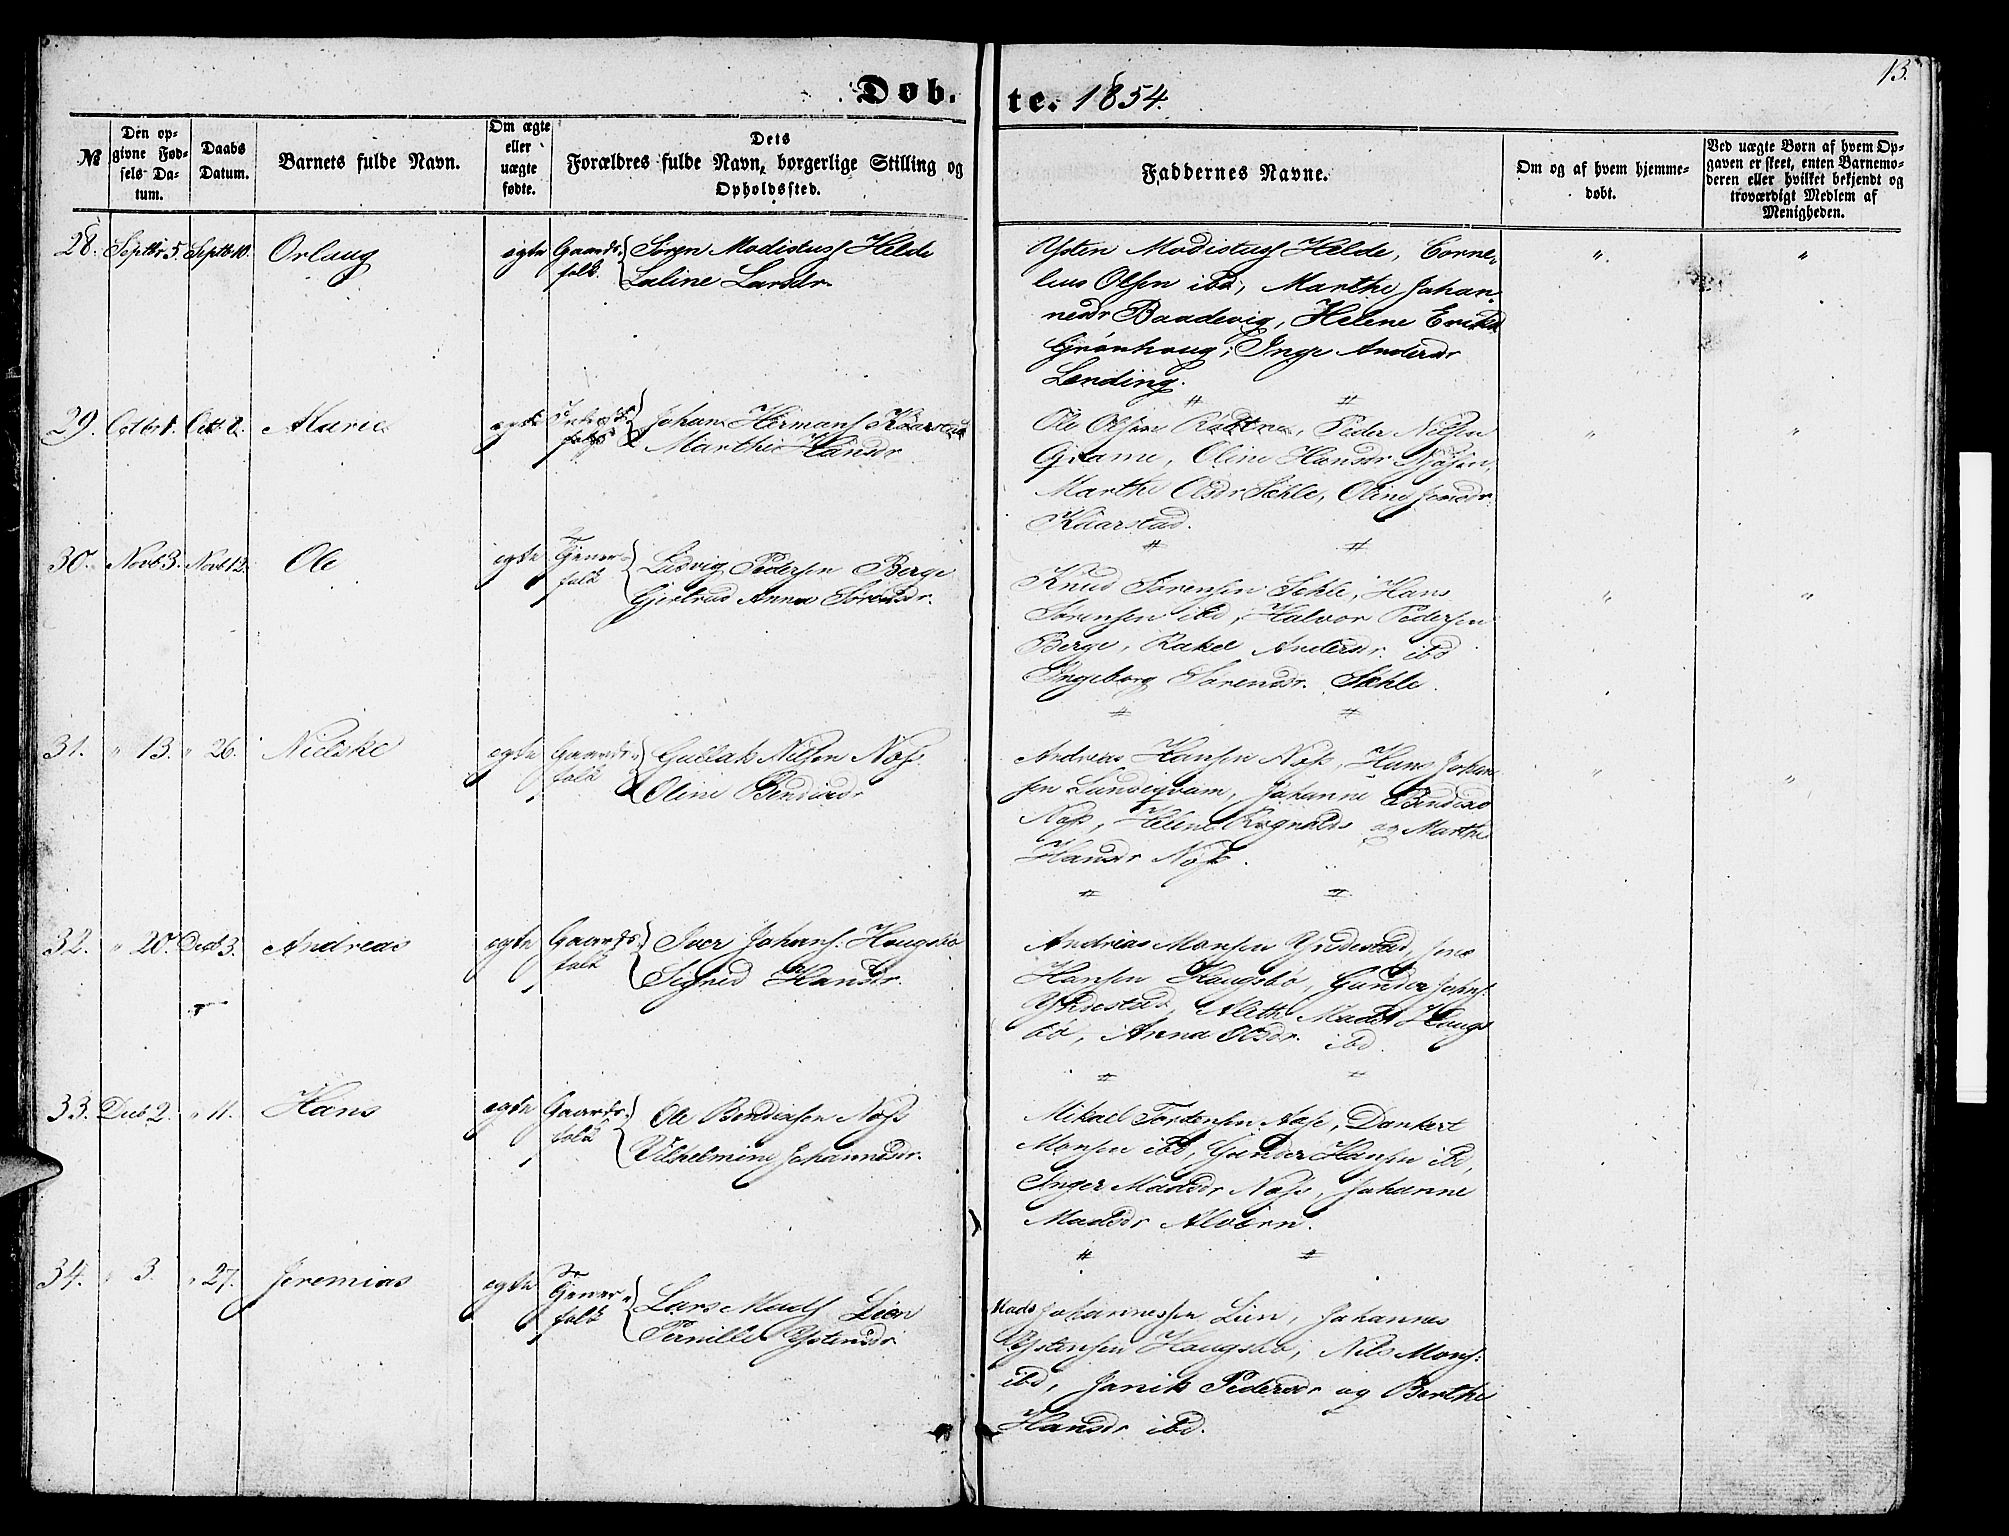 13.
Døb.te. 1854.
№
Den opgivne Fødsels Datum.
Daabs Datum.
Barnets fulde Navn.
Om ægte eller uægte fødte.
Dets Forældres fulde Navn, borgerlige Stilling og Opholdssted.
Faddernes Navne.
Om og af hvem hjemmedøbt.
Ved uægte Børn af hvem Opgaven er skeet, enten Barnemoderen eller hvilket bekjendt og troværdigt Medlem af Menigheden.
28. Septbr 5. Septb 10. Orlaug egte Gaardsfolk Søren Modistus Helde
Laline Larsdr.
Ysten Modistus Helde, Corne-
lius Olsen ibd, Marthe Johan-
nesdr Baadevig, Helene Eriksd
Grønhaug, Inge Andersdr
Lending.
29. Octbr 1. Octb 8. Marie egte Johan Hermans Kaarstad
Marthe Hansdr
Ole Olsen Peder Nilsen
Grame, Oline Hansdr
Marthe Olsdr Sehle, Oline Jensdr
Kaarstad.
30. Novb 3. Novb 12. Ole egte Tjenerfolk Ludvig Pedersen Berge
Gjertrud Anna Sørensdr.
Knud Sørensen Sehle, Hans
Sørensen ibd, Halvor Pedersen
Berge, Rakel Andersdr. ibd
Ingeborg Sørensdr. Sehle.
31. " 13. " 26. Nielske egte Gaardsfolk Gullak Nilsen Næss
Oline Bendixdr
Andreas Hansen Næss, Hans Johan-
sen Lundeqvam, Johanne Bendixd
Næss, Helene og Marthe
Hansdr Næss.
32. " 20. Decb 3. Andreas egte Gaardsfolk Iver Johans. Haugsbø
Signed Hansdr.
Andreas Monsen Yndestad, Jens
Hansen Haugsbø, Gunder Johns.
Yndestad, Alith Madsd Haugs
bø, Anna Olsdr. ibd.
33. Decb 2. " 11. Hans egte Gaardsfolk Ole Bendixsen Næss
Vilhelmine Johannesdr.
Mikael Torstensen Næss, Dankert
Monsen ibd, Gunder Hansen ibd,
Inger Madsdr Næss, Johanne
Madsdr Alværn.
34. " 3. " 27. Jeremias egte Tjenerfolk Lars Mads Lien
Pernille Ystensdr
Mads Johannessen Lien, Johannes
Ystensen Haugsbø, Nils Mons:
ibd, Janik Pedersdr og Berthe
Hansdr ibd.